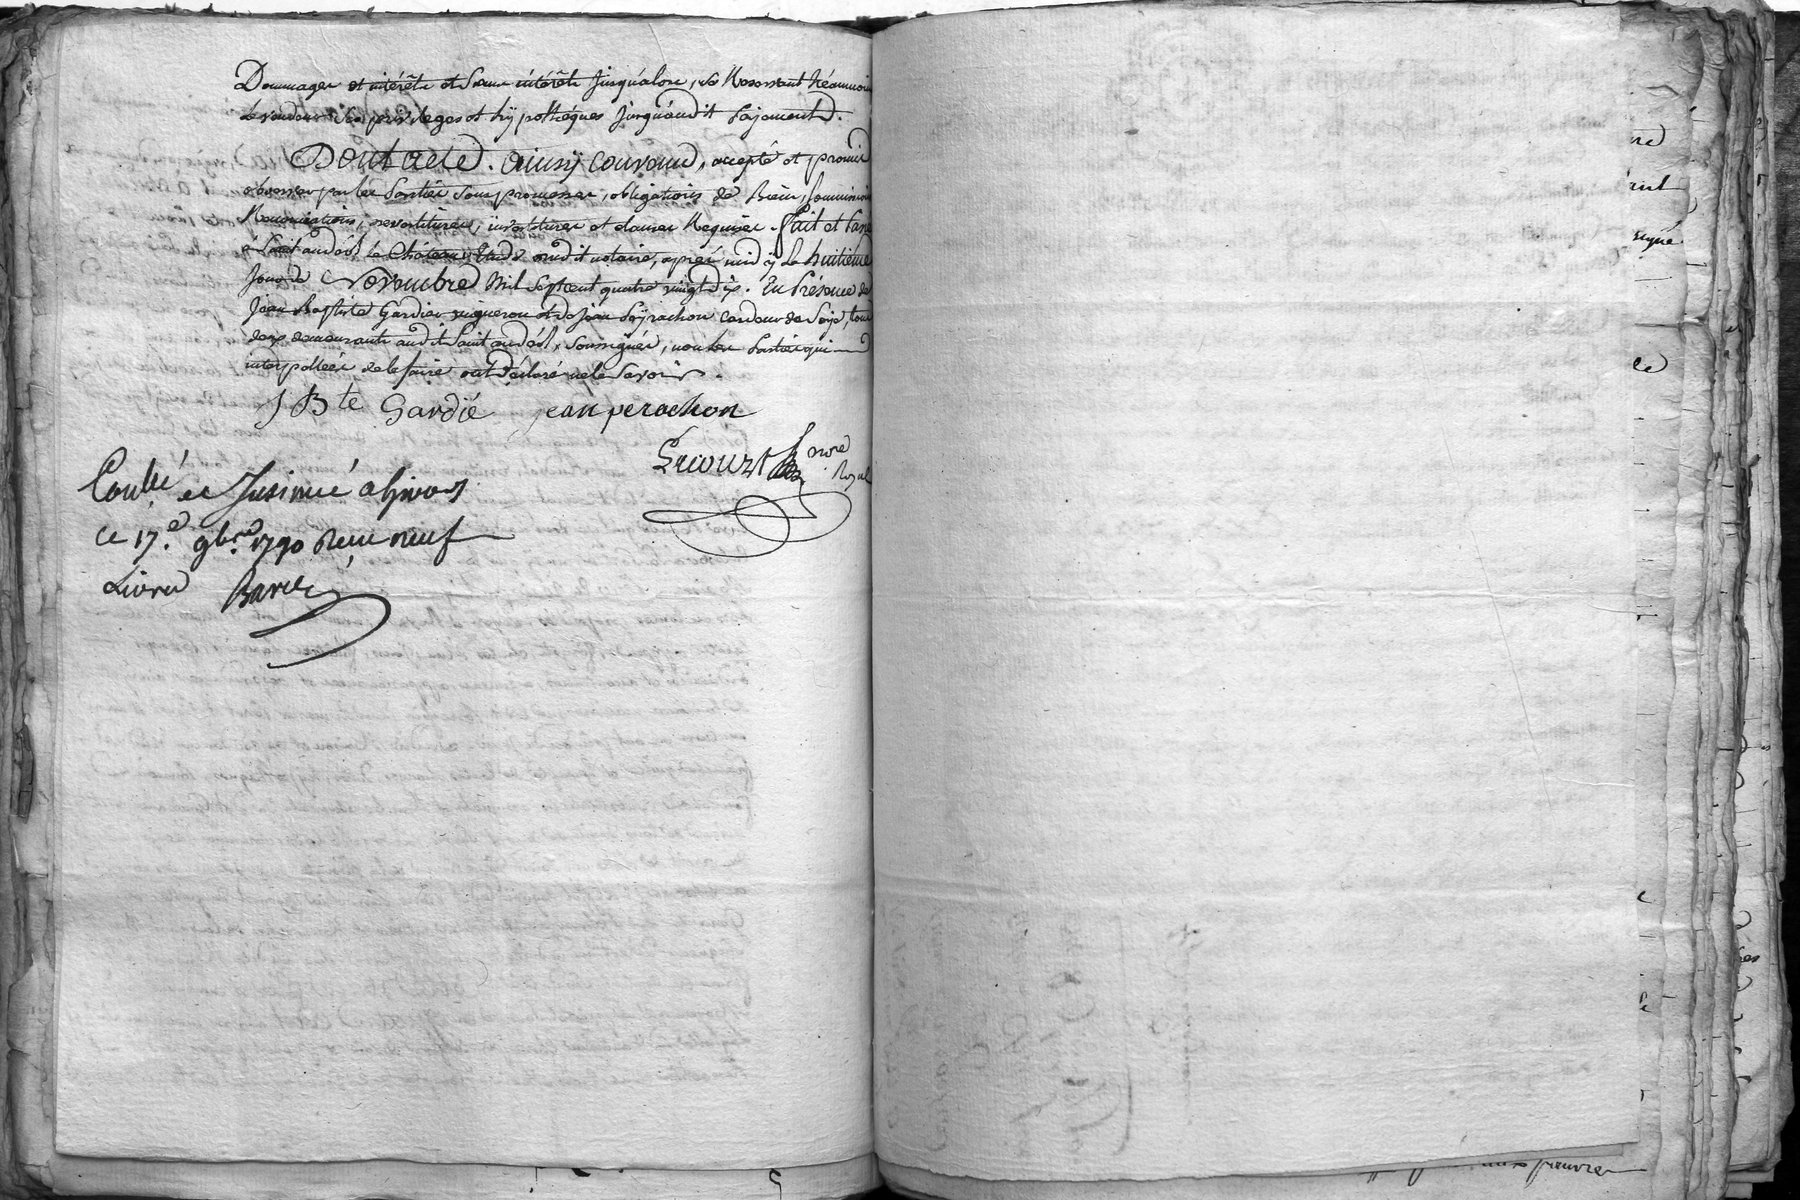 Dommages et intérêts et sans intérêts jusqu'alors, se Réservant Néanmoins
le vendeur ses privileges et hÿpothéques jusqu'audit paÿement.
Dont acte. ainsÿ convenu, accepté et promis
observer par les parties sous promesses, obligations de Biens, soumissions
Renonciations, revestitures, investitures et clauses Requises. fait et passé
à Saint andéol le Château, Etude dudit notaire, aprés midÿ le huitième
jour de Novembre Mil Sept cent quatre vingt dix. En Présence de
Jean Baptiste Gardier vigneron et de jean Peÿrachon cardeur de soÿe, tous
deux demeurants audit Saint andéol, soussignés, non les parties qui
interpellées de le faire ont déclaré ne le savoir.
J Bte Gardié jean perachon
not.re Royal
Con.lé et Insinué a Givors
ce 17.e 9bre 1790 Reçu neuf
Livres